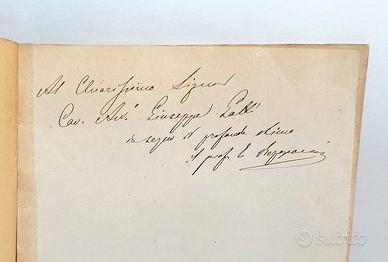 Al Chiarissimo Signor
Cav. Avv. Giuseppe
in segno di profonda stima
Il prof. E.
subito